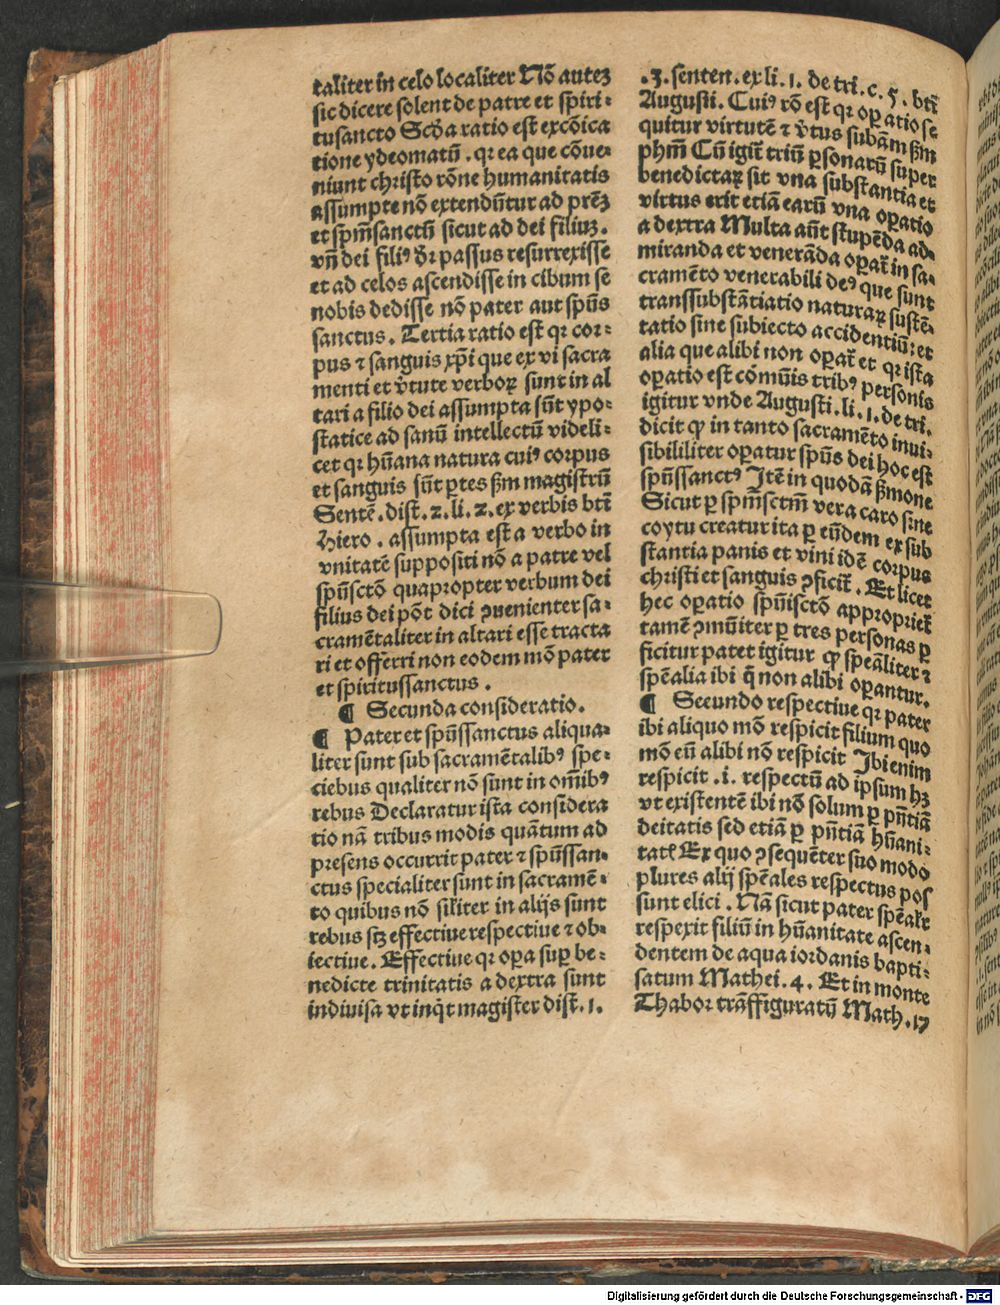 taliter in celo localiter Nō auteʒ
sic dicere solent de patre et spiri⸗
tusancto Scḋa ratio est excōica
tione ydeomatū . qꝛ ea que cōue⸗
niunt christo rōne humanitatis
assumpte nō extendūtur ad prēʒ
et spm̄sanctū sicut ad dei filiuʒ .
vn̄ dei filiꝰ dr̄ passus resurrexisse
et ad celos ascendisse in cibum se
nobis dedisse nō pater aut spūs
sanctus . Tertia ratio est qꝛ cor⸗
pus ⁊ sanguis xp̄i que ex vi sacra
menti et v̄tute verboꝝ sunt in al
tari a filio dei assumpta sūt ypo⸗
statice ad sanū intellectū videli⸗
cet qꝛ hūana natura cuiꝰ corpus
et sanguis sūt ꝑtes ẜm magistrū
Sentē . dist . 2 . li . 2 . ex verbis btī
Hiero . assumpta est a verbo in
vnitatē suppositi nō a patre vel
spūsctō quapropter verbum dei
filius dei pōt dici ꝯuenienter sa⸗
cramētaliter in altari esse tracta
ri et offerri non eodem mō pater
et spiritussanctus .
¶ Secunda consideratio .
¶ Pater et spūssanctus aliqua⸗
liter sunt sub sacramētalibꝰ spe⸗
ciebus qualiter nō sunt in om̄ibꝰ
rebus Declaratur ista considera
tio nā tribus modis quātum ad
presens occurrit pater ⁊ spūssan⸗
ctus specialiter sunt in sacramē⸗
to quibus nō sil̄iter in alijs sunt
rebus scꝫ effectiue respectiue ⁊ ob⸗
iectiue . Effectiue qꝛ oꝑa suꝑ be⸗
nedicte trinitatis a dextra sunt
indiuisa vt inq̇t magister dist . 1 .
. 3 . senten . ex li . 1 . de tri . c . 5 . btī
Augusti . Cuiꝰ rō est qꝛ oꝑatio se
quitur virtutē ⁊ v̄tus subām ẜm
phm̄ Cū igit̄ triū ꝑsonarū super
benedictaꝝ sit vna substantia et
virtus erit etiā earū vna oꝑatio
a dextra Multa aūt stupēda ad⸗
miranda et venerāda oꝑat̄ in sa⸗
cramēto venerabili deꝰ que sunt
transsubstātiatio naturaꝝ sustē⸗
tatio sine subiecto accidentiū : et
alia que alibi non oꝑat̄ et qꝛ ista
oꝑatio est cōmūis tribꝰ personis
igitur vnde Augusti . li . 1 . de tri .
dicit ꝙ in tanto sacramēto inui⸗
sibililiter oꝑatur spūs dei hoc est
spūssanctꝰ Jtē in quodā ẜmone
Sicut ꝑ spm̄sctm̄ vera caro sine
coytu creatur ita ꝑ eūdem ex sub
stantia panis et vini idē corpus
christi et sanguis ꝯficit̄ . Et licet
hec oꝑatio spūisctō appropriet̄
tamē ꝯmūiter ꝑ tres personas ꝑ
ficitur patet igitur ꝙ speāliter ⁊
spēalia ibi q̄ non alibi oꝑantur .
¶ Secundo respectiue qꝛ pater
ibi aliquo mō respicit filium quo
mō eū alibi nō respicit Jbi enim
respicit . i . respectū ad ipsum hꝫ
vt existentē ibi nō solum ꝑ pn̄tiā
deitatis sed etiā ꝑ pn̄tiā hūani⸗
tatꝭ Ex quo ꝯsequēter suo modo
plures alij spēales respectus pos
sunt elici . Nā sicut pater spēalr̄
respexit filiū in hūanitate ascen⸗
dentem de aqua iordanis bapti⸗
satum Mathei . 4 . Et in monte
Thabor trāffiguratū Math . 17
Digitalisierung gefördert durch die Deutsche Forschungsgemeinschaft - DFG